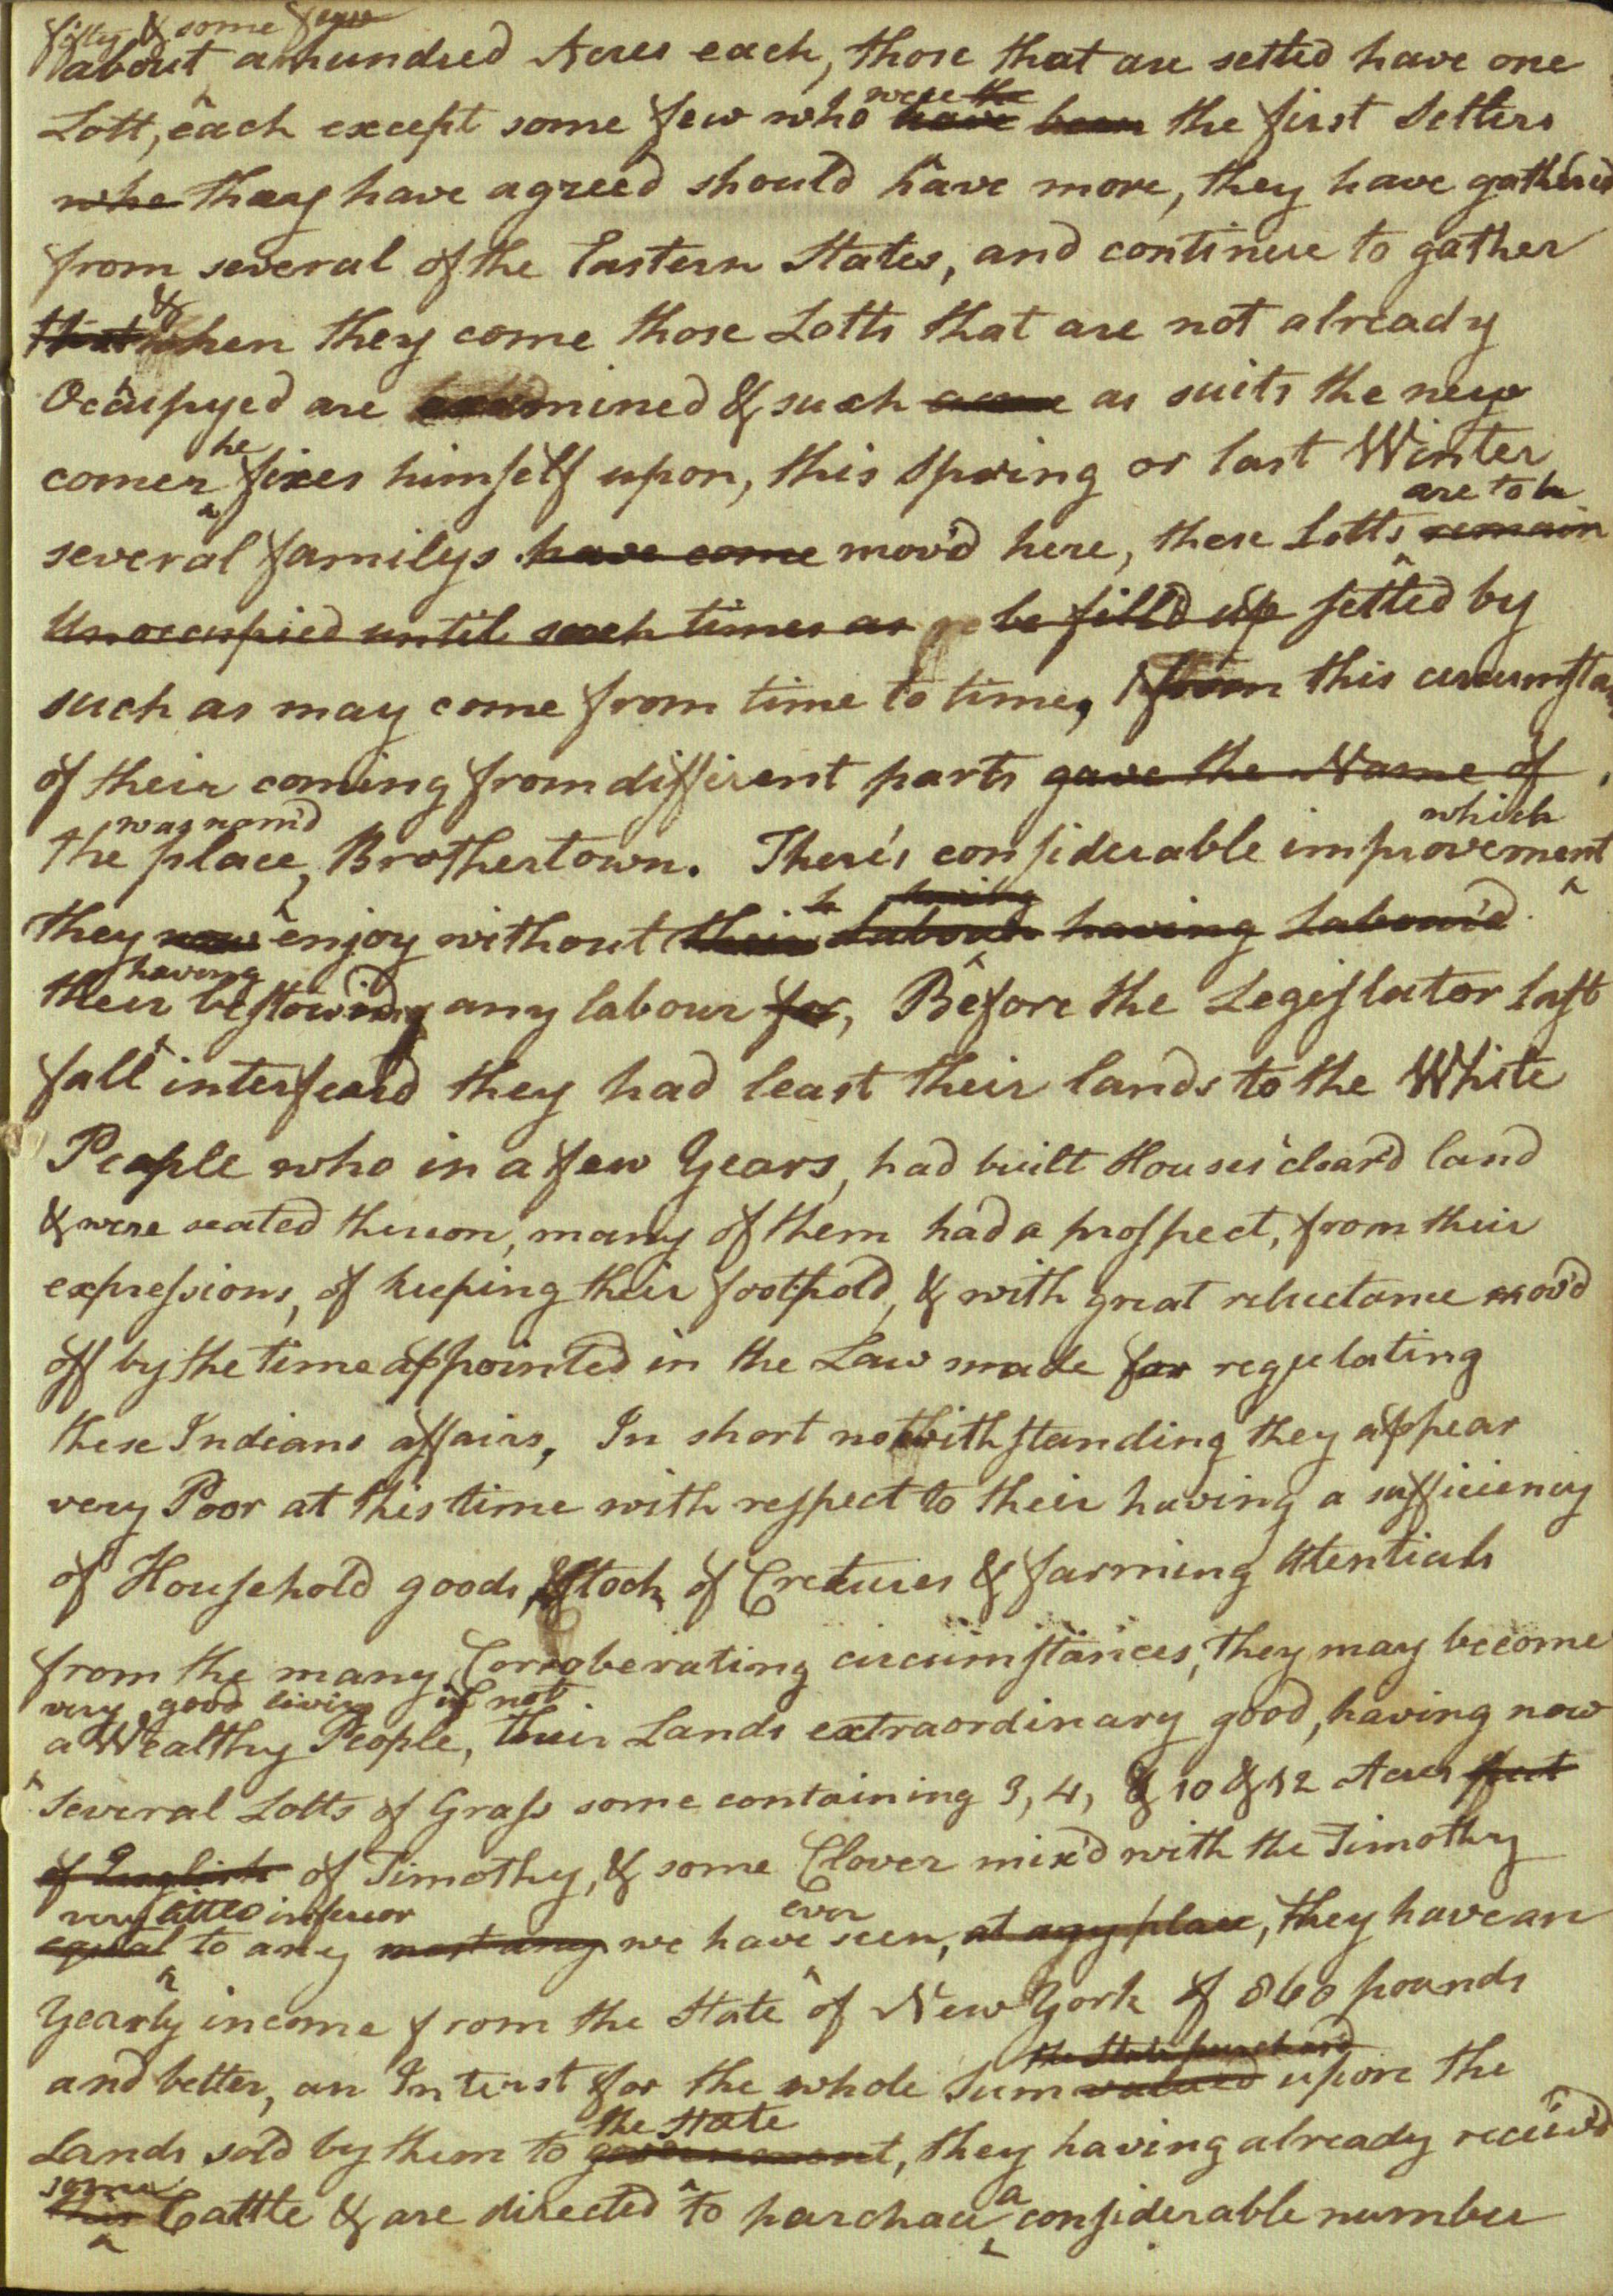 fifty & some few
about a hundred Acres each, those that are settled have one
Lott, each except some few who were the have been the first Setters
who they have agreed should have more, they have gathered
from several of the Eastern States, and continue to gather
that & when they come those Lotts that are not already
Occupyed are examined & such as suits the new
comer he fixes himself upon, this Spring or last Winter
are to be
several familys have come mov'd here, these Lotts remain
Unoccupied until such times as be filld up setted by
such as may come from time to time, from this circumsta
of their coming from different parts gave the Name of
was nam'd which
the place, Brothertown. There's considerable improvement
having
they now enjoy without their Labour having Labour'd
having
their bestowing any labour for, Before the Legislator last
fall interfeard they had least their lands to the White
People who in a few Years, had built Houses clear'd land
& were seated thereon, many of them had a prospect, from their
expressions, of keeping their foothold, & with great reluctance mov'd
off by the time appointed in the Law made for regulating
these Indians affairs, In short notwithstanding they appear
very Poor at this time with respect to their having a sufficiency
of Household goods, Stock of Cretures & farming Utentials
from the many Corroberating circumstances, they may become
very good living if not
a Wealthy People, their Lands extraordinary good, having now
Several Lotts of Grass some containing 3, 4, & 10 & 12 Acres
of English of Timothy, & some Clover mix'd with the Timothy
very little inferior ever
equal to any most any we have seen, at any place, they have an
Yearly income from the State of New York of 860 pounds
the State purchas'd
and better, an Interst for the whole Sum valued upon the
the State
Lands sold by them to government, they having already receiv'd
some a
this Cattle & are directed to purchace considerable number